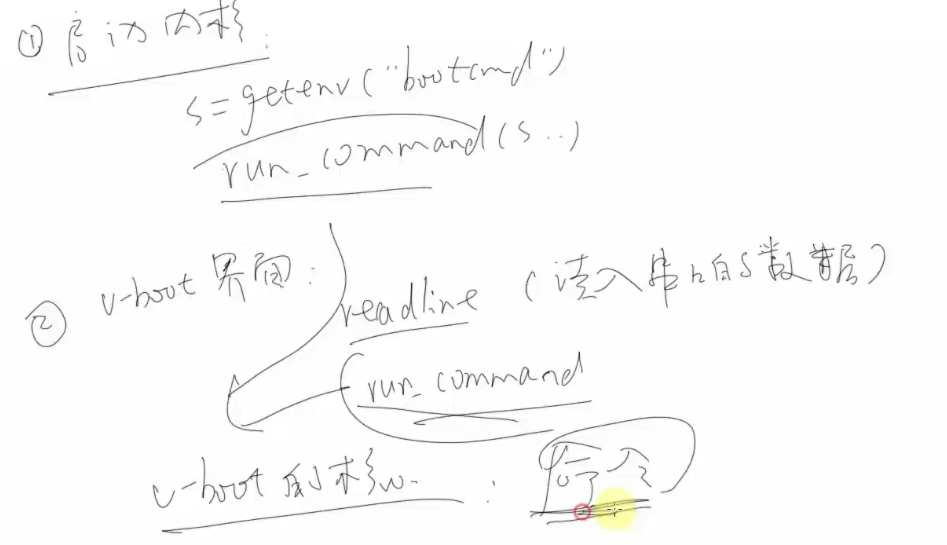 ① 启动内核:
s=getenv("bootcmd")
run_command(s..)
② u-boot 界面: readline (读入串口的数据)
run_command
u-boot的核心: 命令